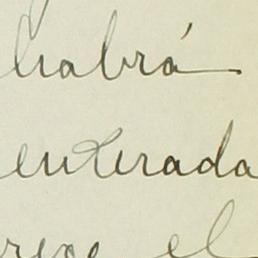 habrá
enterada
el